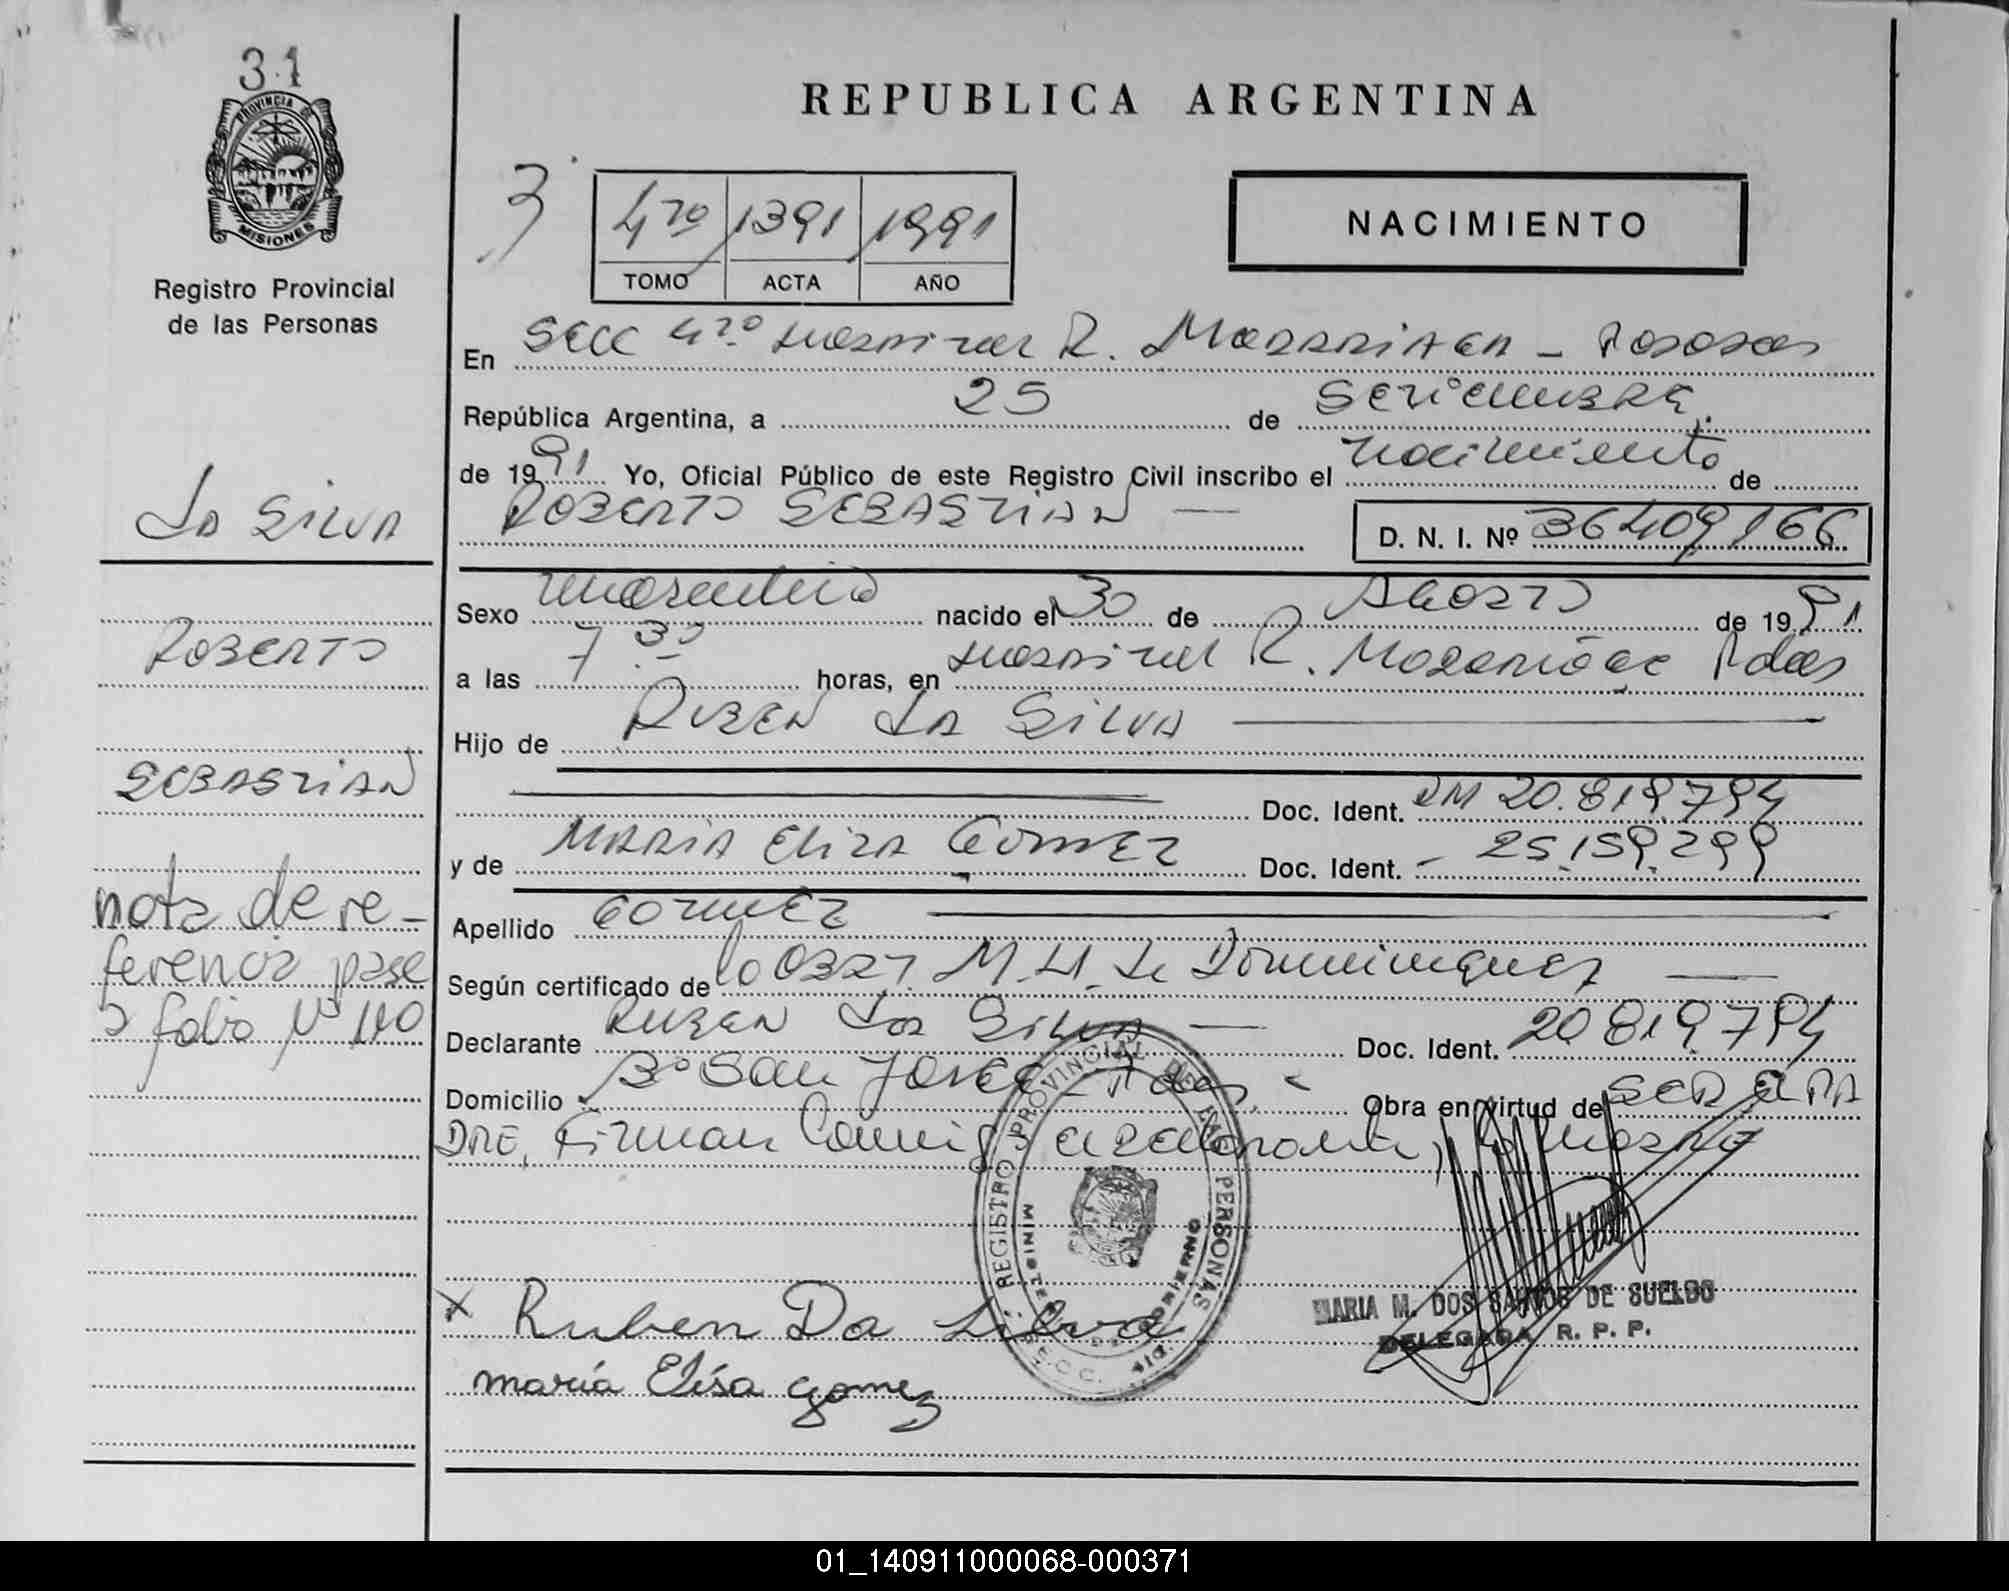 31
REPUBLICA ARGENTINA
PROVINCIA DE MISIONES
Registro Provincial
de las Personas
3
4to 1391 1991
TOMO ACTA AÑO
NACIMIENTO
En SECC 4to Hospital R. Madariaga - Posadas
República Argentina, a 25 de SETIEMBRE.
de 1991 Yo, Oficial Público de este Registro Civil inscribo el nacimiento de
ROBERTO SEBASTIAN — D. N. I. Nº 36409166
DA SILVA
ROBERTO
SEBASTIAN
nota de re-
ferencia pase
a folio Nº 110
Sexo masculino nacido el 30 de AGOSTO de 1991
a las 7 30 horas, en Hospital R. Madariaga Pdas
Hijo de RUBEN DA SILVA
Doc. Ident. DM 20.819.794
y de MARIA ELIZA GOMEZ Doc. Ident. - 25.159.299
Apellido GOMEZ
Según certificado de la OBST. M. H. de Dominguez
Declarante RUBEN DA SILVA — Doc. Ident. 20819794
Domicilio Bº San José - Pdas. Obra en virtud de SER EL PA
DRE, Firman Conmigo el declarante,
REGISTRO PROVINCIAL DE LAS PERSONAS
MINISTERIO DE GOBIERNO
x Ruben Da Silva
maría Elisa gomez
MARIA M. DOS SANTOS DE SUELDO
DELEGADA R. P. P.
01_140911000068-000371